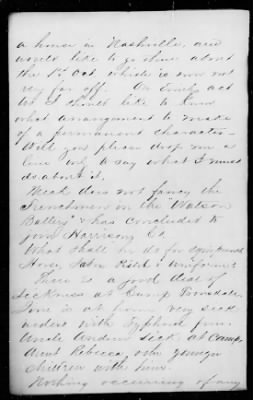 a house in Nashville, and
would like to go there about
the 1st Oct. which is now not
very far off. On that acct
I should like to know
what arrangement to make
of a permanent character -
Will you please drop me a
line only to say what I must
do about it.
Meck does not fancy the
Frenchmen in the "Watson
Battery" & has concluded to
join Harrisons Co
What shall he do for
Horse, Saber & uniform?
There is a good deal of
sickness at Camp Trousdale
is at home very sick
with Typhoid fever
Uncle sick at camp
Aunt Rebecca & the younger
children with him.
Nothing occurring of any